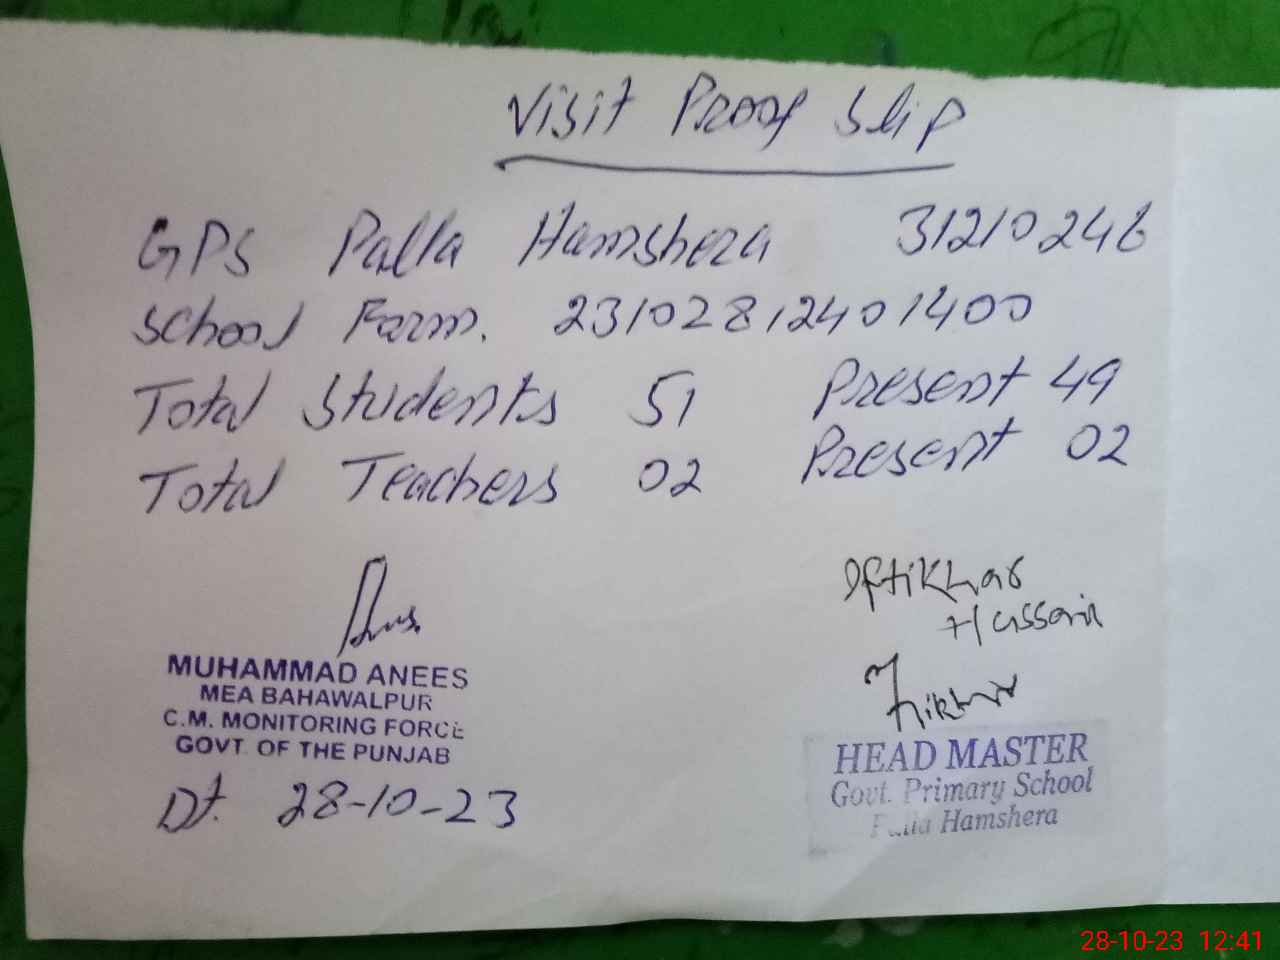 Visit Proof Slip
GPS Palla Hamshera 31210246
School Farm. 23102812401400
Total Students 51 Present 49
Total Teachers 02 Present 02
Iftikhar
Hussain
MUHAMMAD ANEES
MEA BAHAWALPUR
C.M. MONITORING FORCE
GOVT. OF THE PUNJAB
Dt. 28-10-23
HEAD MASTER
Govt. Primary School
Palla Hamshera
28-10-23 12:41